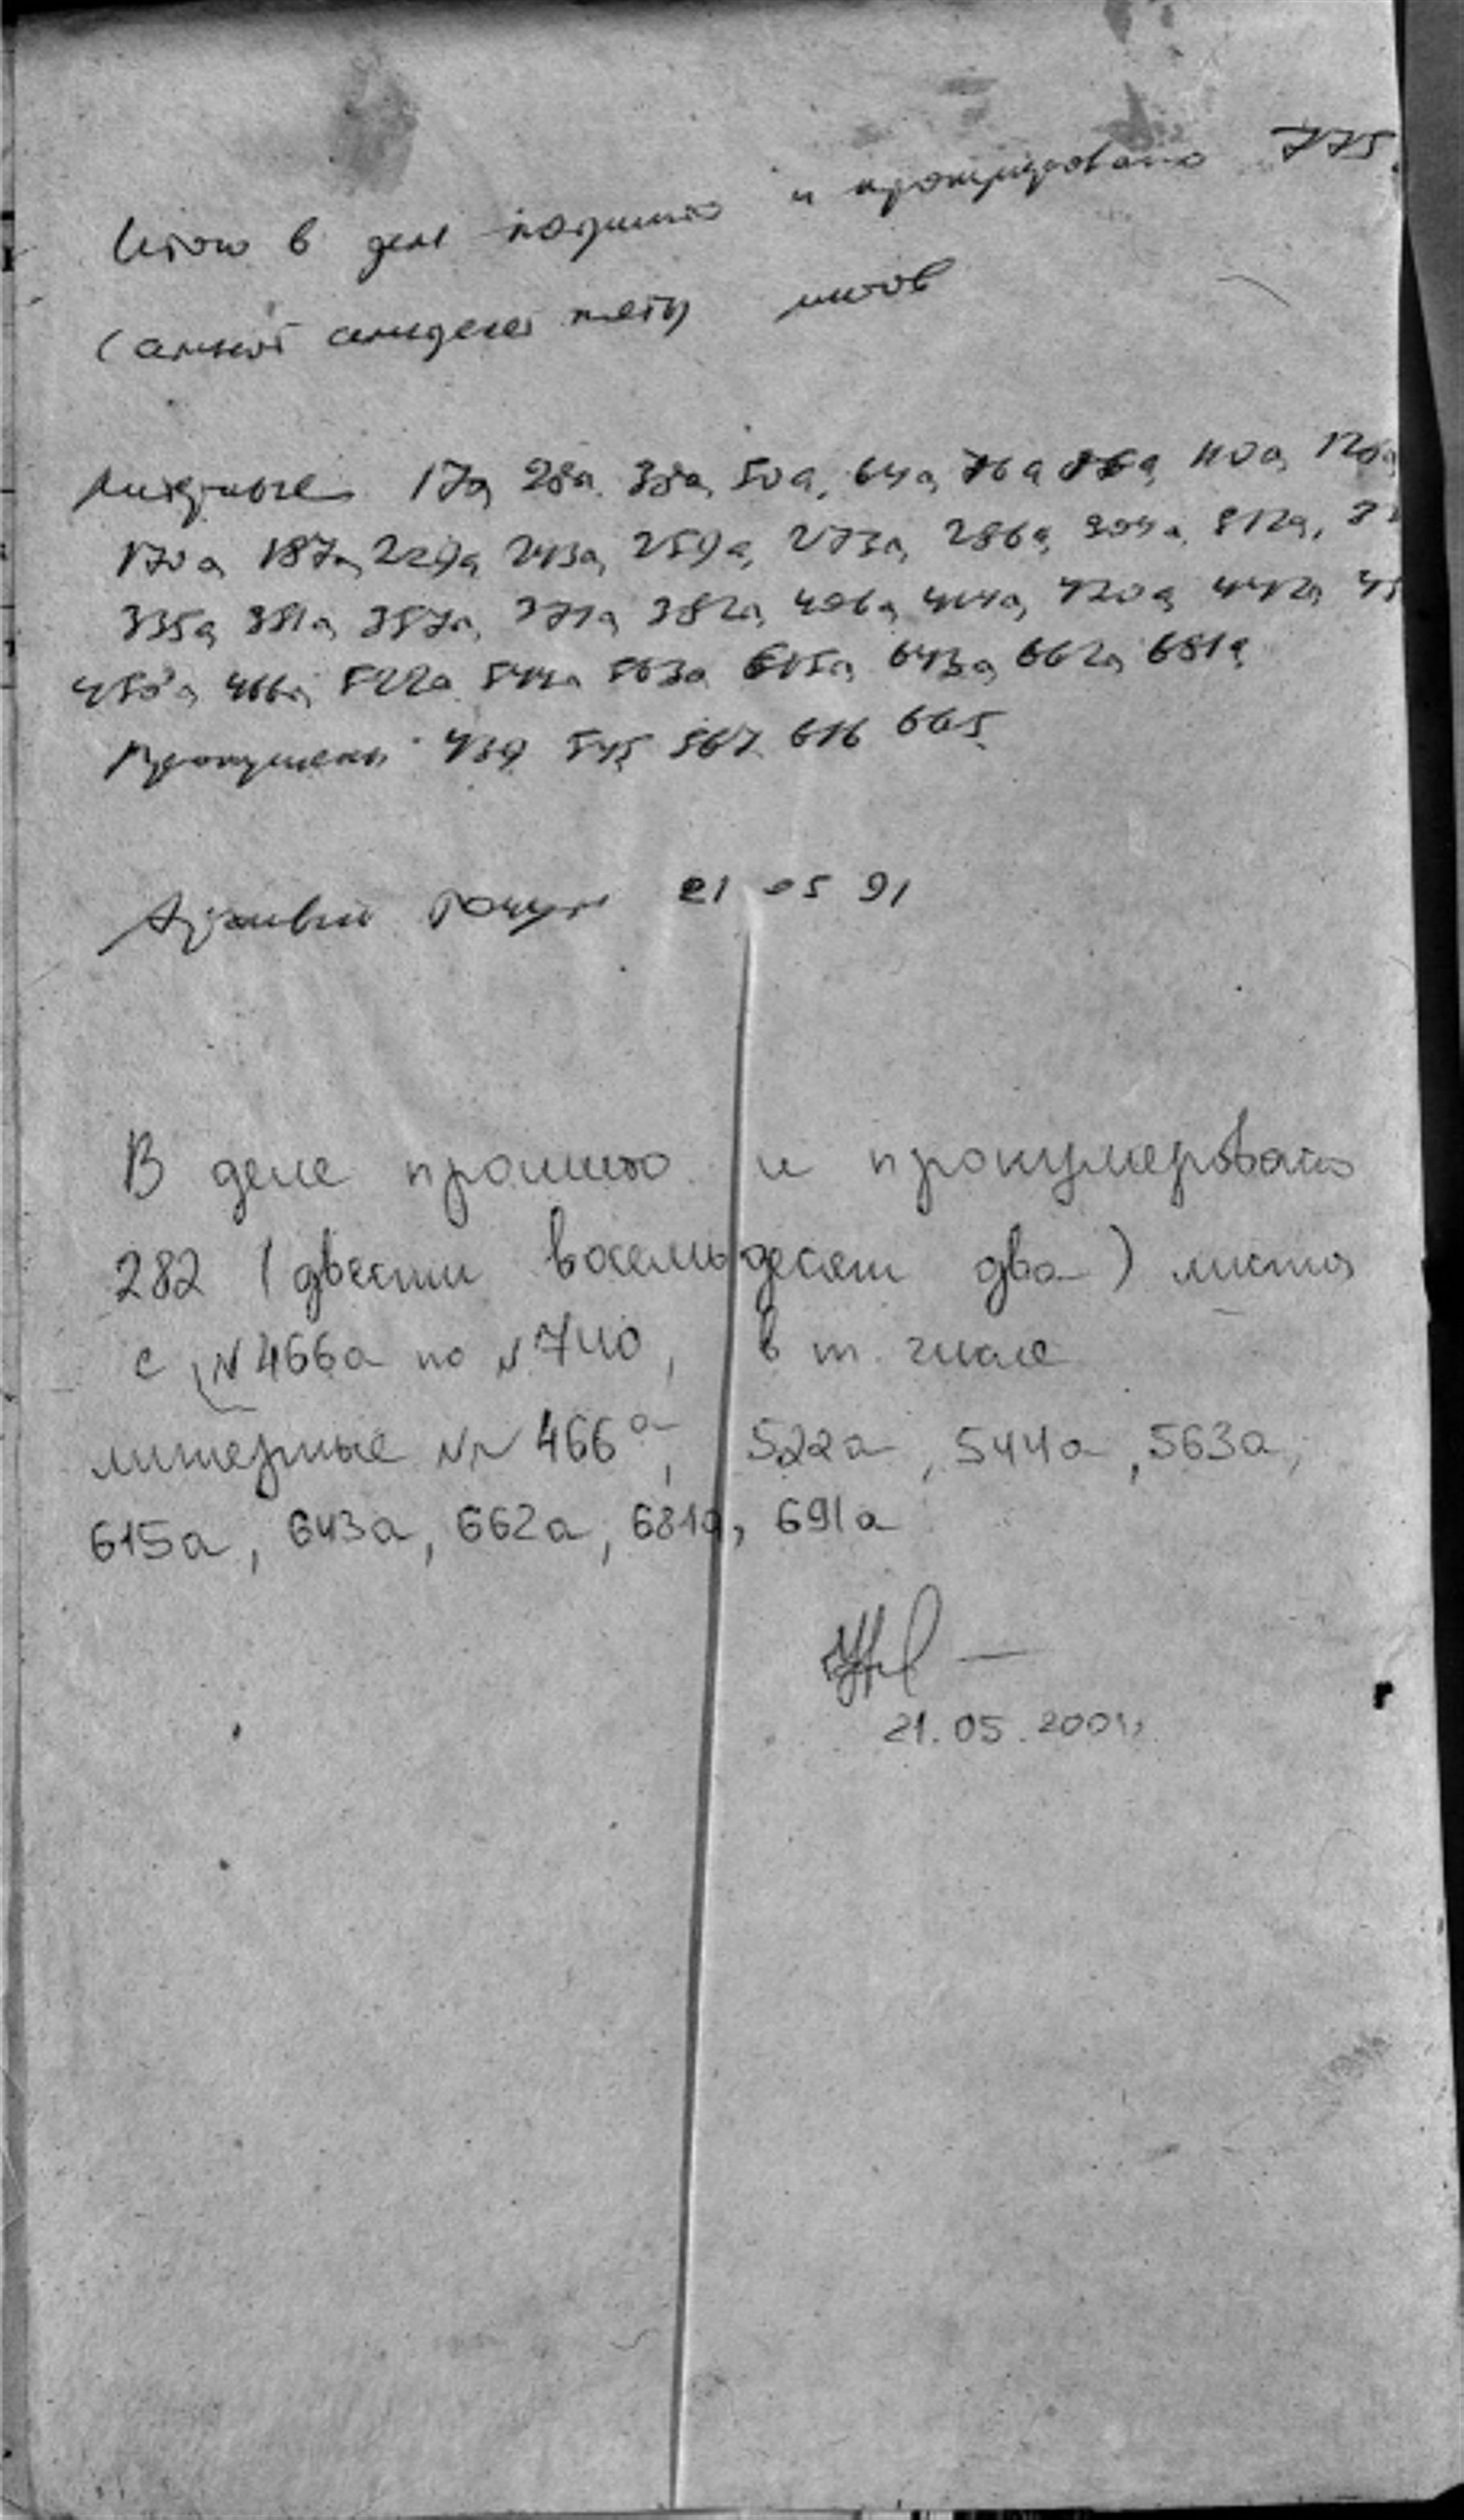 Итого в деле подшито и пронумеровано 775
(семьсот семьдесят пять) листов
Литерные 17а, 28а, 38а, 50а, 64а, 76а, 110а,
170а, 187а, 229а, 243а, 259а, 273а, 286а, 304а, 312а,
335а, 357а, 371а, 382а, 406а, 414а, 420а, 442а,
458а, 466а, 522а 544а 563а 615а, 643а, 662а, 681а
Пропущены 439 545 567 616 665
21 05 91
В деле прошито и пронумеровано
282 (двести восемьдесят два) листа
с №466а по №740, в т. числе
литерные №№ 466а, 522а, 544а, 563а,
615а, 643а, 662а, 681а, 691а
21.05.2001г.